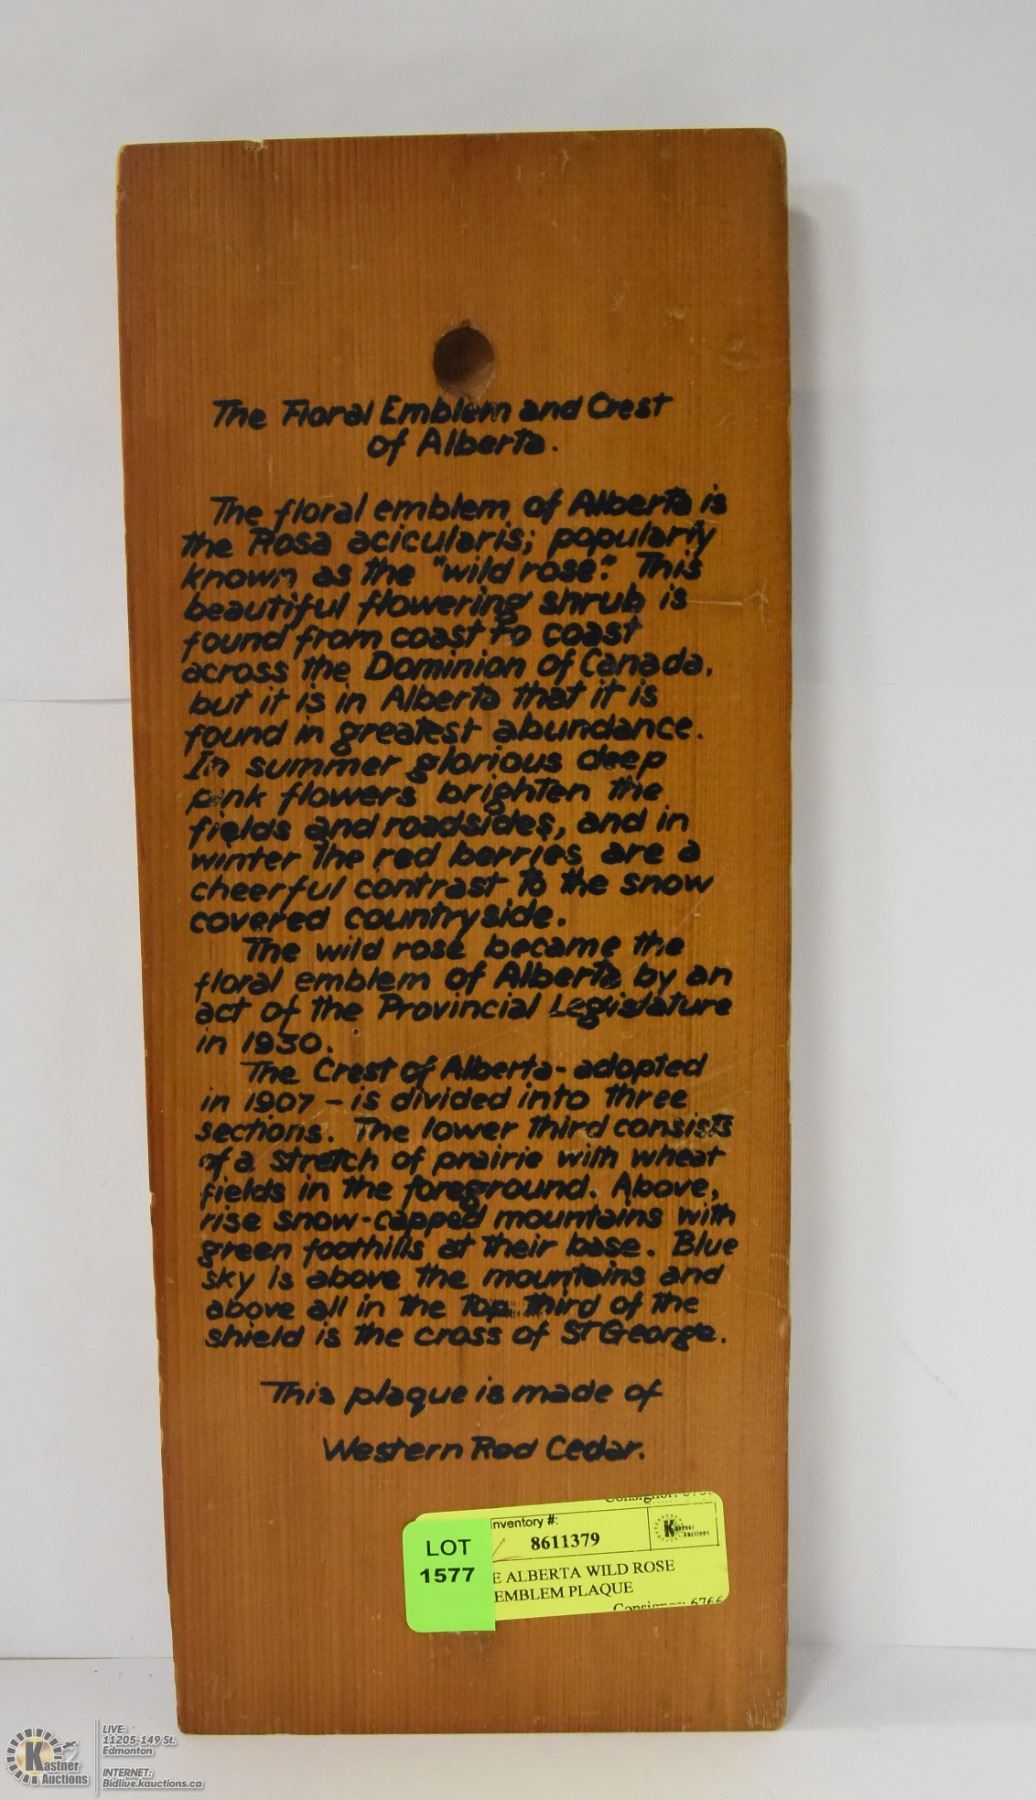 The Floral Emblem and Crest
of Alberta.
The floral emblem of Alberta is
the Rosa acicularis; popularly
known as the "wild rose". This
beautiful flowering shrub is
found from coast to coast
across the Dominion of Canada,
but it is in Alberta that it is
found in greatest abundance.
In summer glorious deep
pink flowers brighten the
fields and roadsides, and in
winter the red berries are a
cheerful contrast to the snow
covered countryside.
The wild rose became the
floral emblem of Alberta by an
act of the Provincial Legislature
in 1930.
The Crest of Alberta - adopted
in 1907 - is divided into three
sections. The lower third consists
of a stretch of prairie with wheat
fields in the foreground. Above,
rise snow-capped mountains with
green foothills at their base. Blue
sky is above the mountains and
above all in the top third of the
shield is the cross of St George.
This plaque is made of
Western Red Cedar.
LOT
1577
Inventory #:
8611379
Kastner
Auctions
E ALBERTA WILD ROSE
EMBLEM PLAQUE
Kastner
Auctions
LIVE:
11205-149 St.
Edmonton
INTERNET:
Bidlive.kauctions.ca